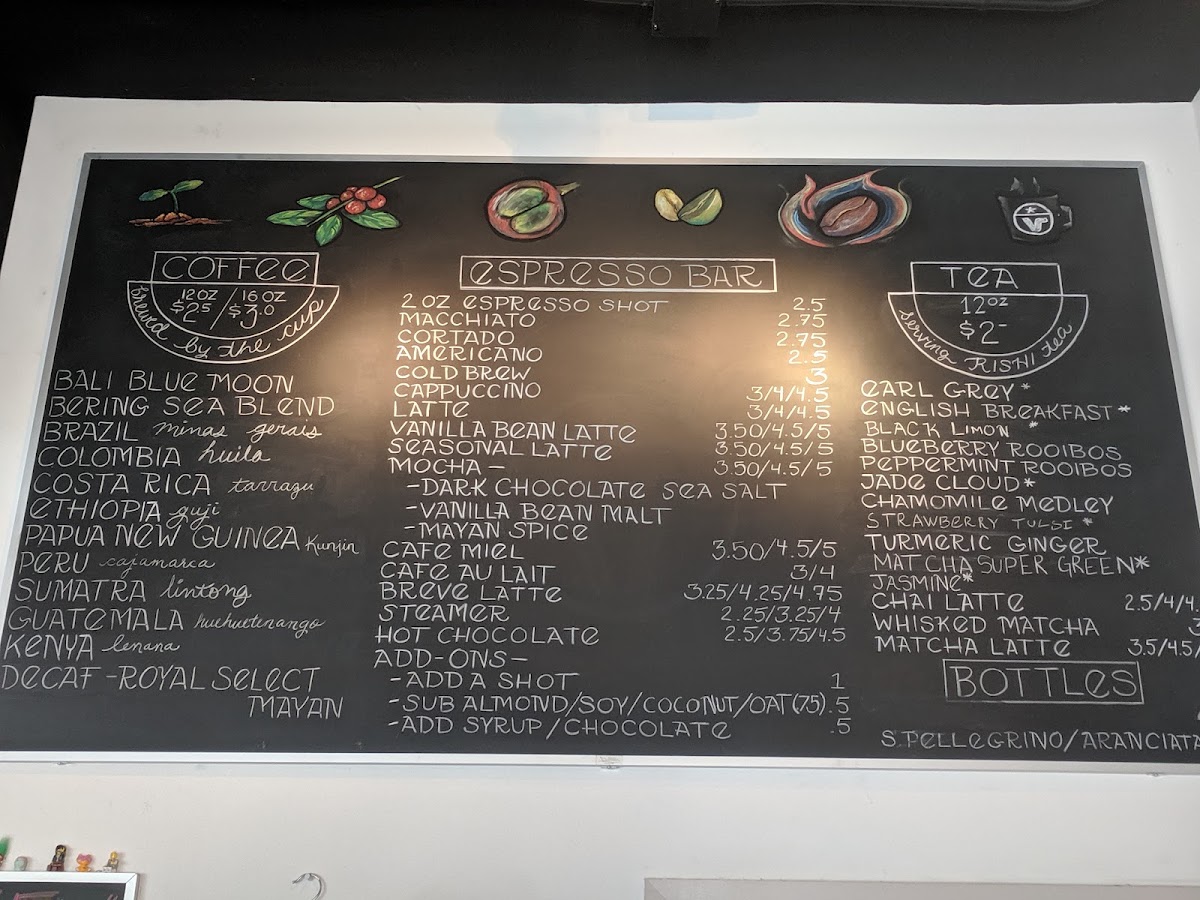 COFFEE
12OZ / 16OZ
$2.5 / $3.0
brewed by the cup
BALI BLUE MOON
BERING SEA BLEND
BRAZIL minas gerais
COLOMBIA huila
COSTA RICA tarrazu
ETHIOPIA guji
PAPUA NEW GUINEA Kunjin
PERU cajamarca
SUMATRA lintong
GUATEMALA huehuetenango
KENYA lenana
DECAF-ROYAL SELECT
MAYAN
ESPRESSO BAR
2 OZ ESPRESSO SHOT 2.5
MACCHIATO 2.75
CORTADO 2.75
AMERICANO 2.5
COLD BREW 3
CAPPUCCINO 3/4/4.5
LATTE 3/4/4.5
VANILLA BEAN LATTE 3.50/4.5/5
SEASONAL LATTE 3.50/4.5/5
MOCHA- 3.50/4.5/5
-DARK CHOCOLATE SEA SALT
-VANILLA BEAN MALT
-MAYAN SPICE
CAFE MIEL 3.50/4.5/5
CAFE AU LAIT 3/4
BREVE LATTE 3.25/4.25/4.75
STEAMER 2.25/3.25/4
HOT CHOCOLATE 2.5/3.75/4.5
ADD-ONS-
-ADD A SHOT 1
-SUB ALMOND/SOY/COCONUT/OAT(.75) .5
-ADD SYRUP/CHOCOLATE .5
VP
TEA
12OZ
$2-
serving RISHI tea
EARL GREY*
ENGLISH BREAKFAST*
BLACK LIMON *
BLUEBERRY ROOIBOS
PEPPERMINT ROOIBOS
JADE CLOUD*
CHAMOMILE MEDLEY
STRAWBERRY TULSI *
TURMERIC GINGER
MATCHA SUPER GREEN*
JASMINE*
CHAI LATTE 2.5/4/4.
WHISKED MATCHA 3
MATCHA LATTE 3.5/4.5/
BOTTLES
S.PELLEGRINO/ARANCIATA